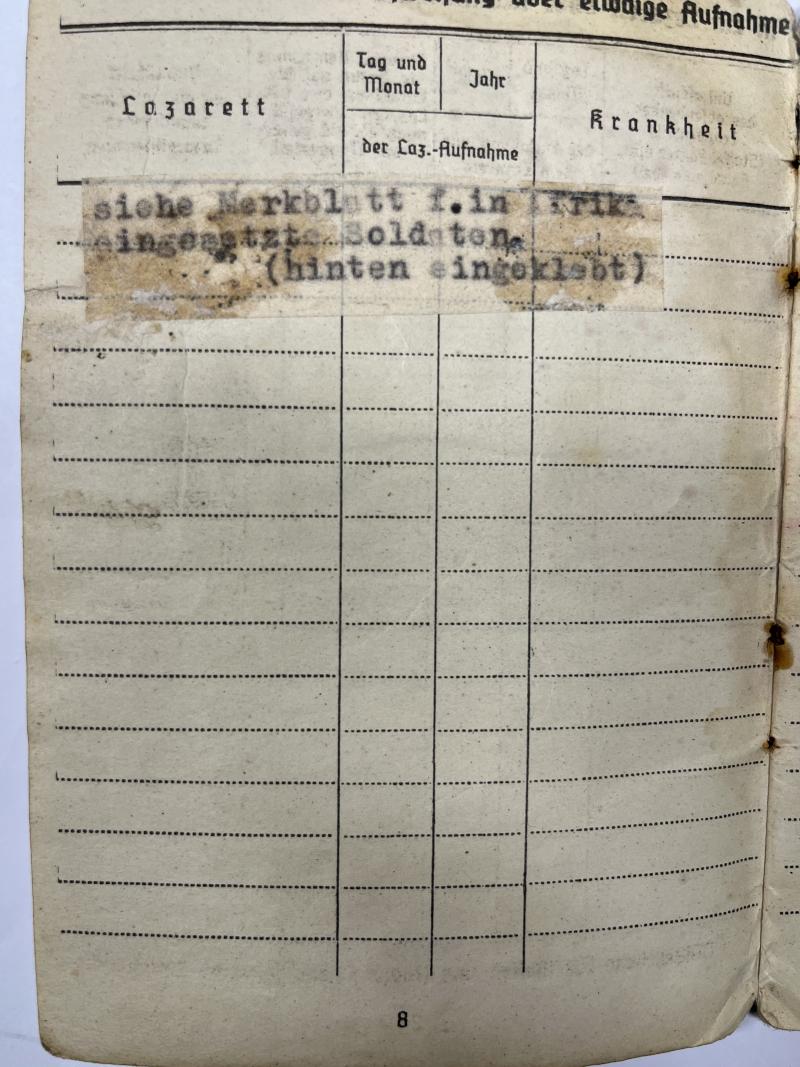 über etwaige Aufnahme
Lazarett
Tag und
Monat
Jahr
der Laz.-Aufnahme
Krankheit
siehe Merkblatt f.in Afrika
eingesetzte Soldaten.
(hinten eingeklebt)
8